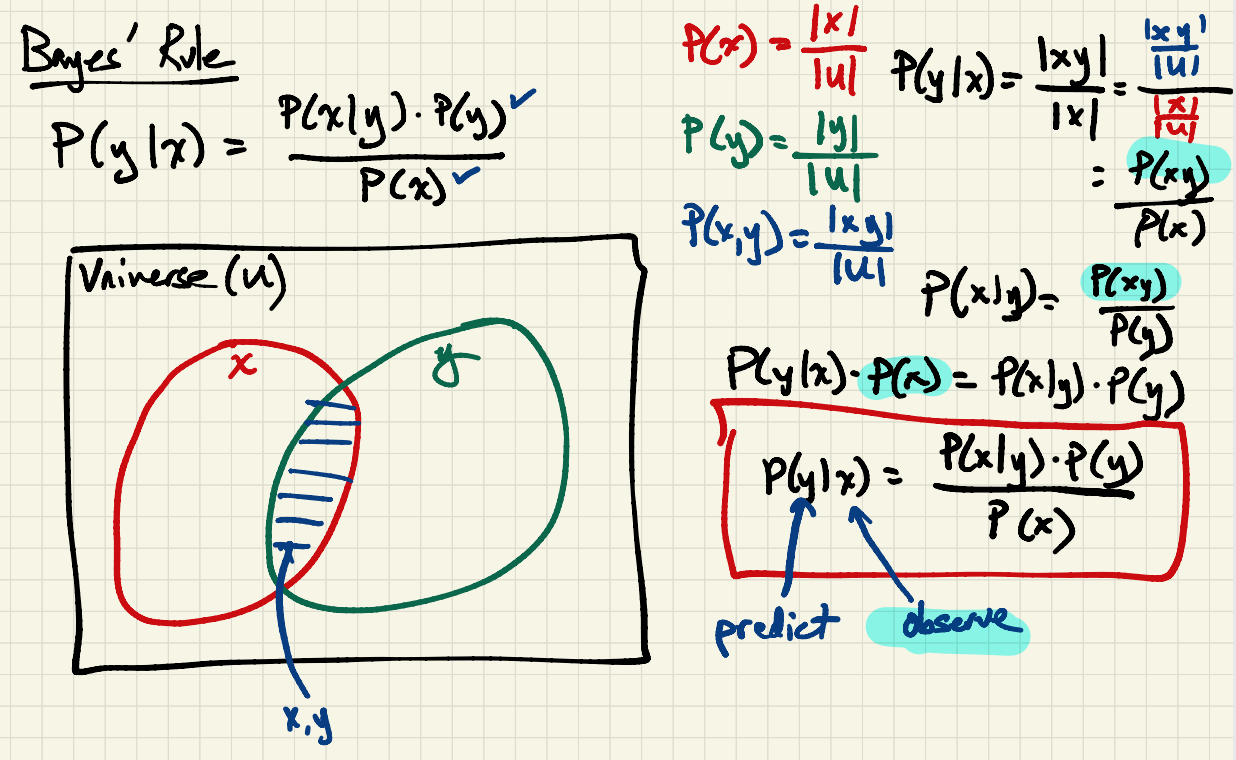 Bayes' Rule
P(y|x) = P(x|y) · P(y) ✓ / P(x) ✓
Universe (U)
x
y
x,y
P(x) = |x| / |U|
P(y) = |y| / |U|
P(x,y) = |xy| / |U|
P(y|x) = |xy| / |x| = |xy| / |U| / |x| / |U|
= P(xy) / P(x)
P(x|y) = P(xy) / P(y)
P(y|x) · P(x) = P(x|y) · P(y)
P(y|x) = P(x|y) · P(y) / P(x)
predict
observe